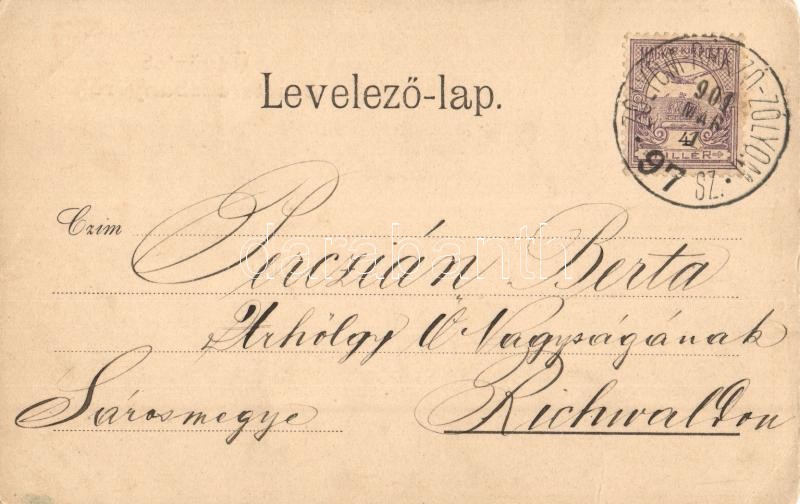 Levelező-lap.
MAGYAR KIR. POSTA
4
FILLÉR
901
MÁR
97
SZ.
Czim
Perczián Berta
Úrhölgy Ő Nagyságának
Sárosmegye Richwaldon
darabanth